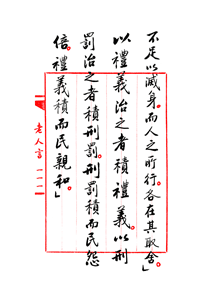 不足以滅身。而人之所行。各在其取舍」
以禮義治之者積禮義。以刑
罰治之者積刑罰。刑罰積而民怨
倍。禮義積而民親和。」
老人言 一一一